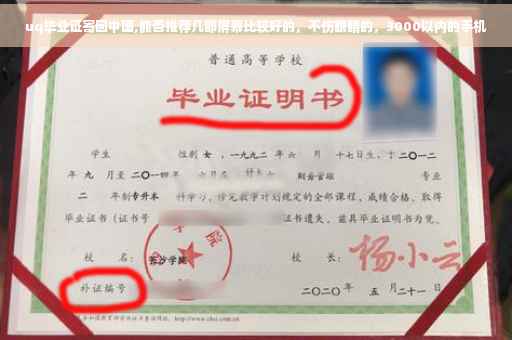 uq毕业证寄回中国,能否推荐几部屏幕比较好的，不伤眼睛的，3000以内的手机
普通高等学校
毕业证明书
学生 性别 女，一九九二年 六 月 十七日生，于 二〇一二
年 九 月至 二〇一四 年 六月在 财务管理 专业
二 年制 专升本 科学习，修完教学计划规定的全部课程，成绩合格，取得
毕业证书（证书号 证书遗失，兹具毕业证明书为凭。
校 名： 长沙学院 校 长： 杨小云
补证编号
二〇二〇年 五 月二十一日
http://www.chsi.com.cn